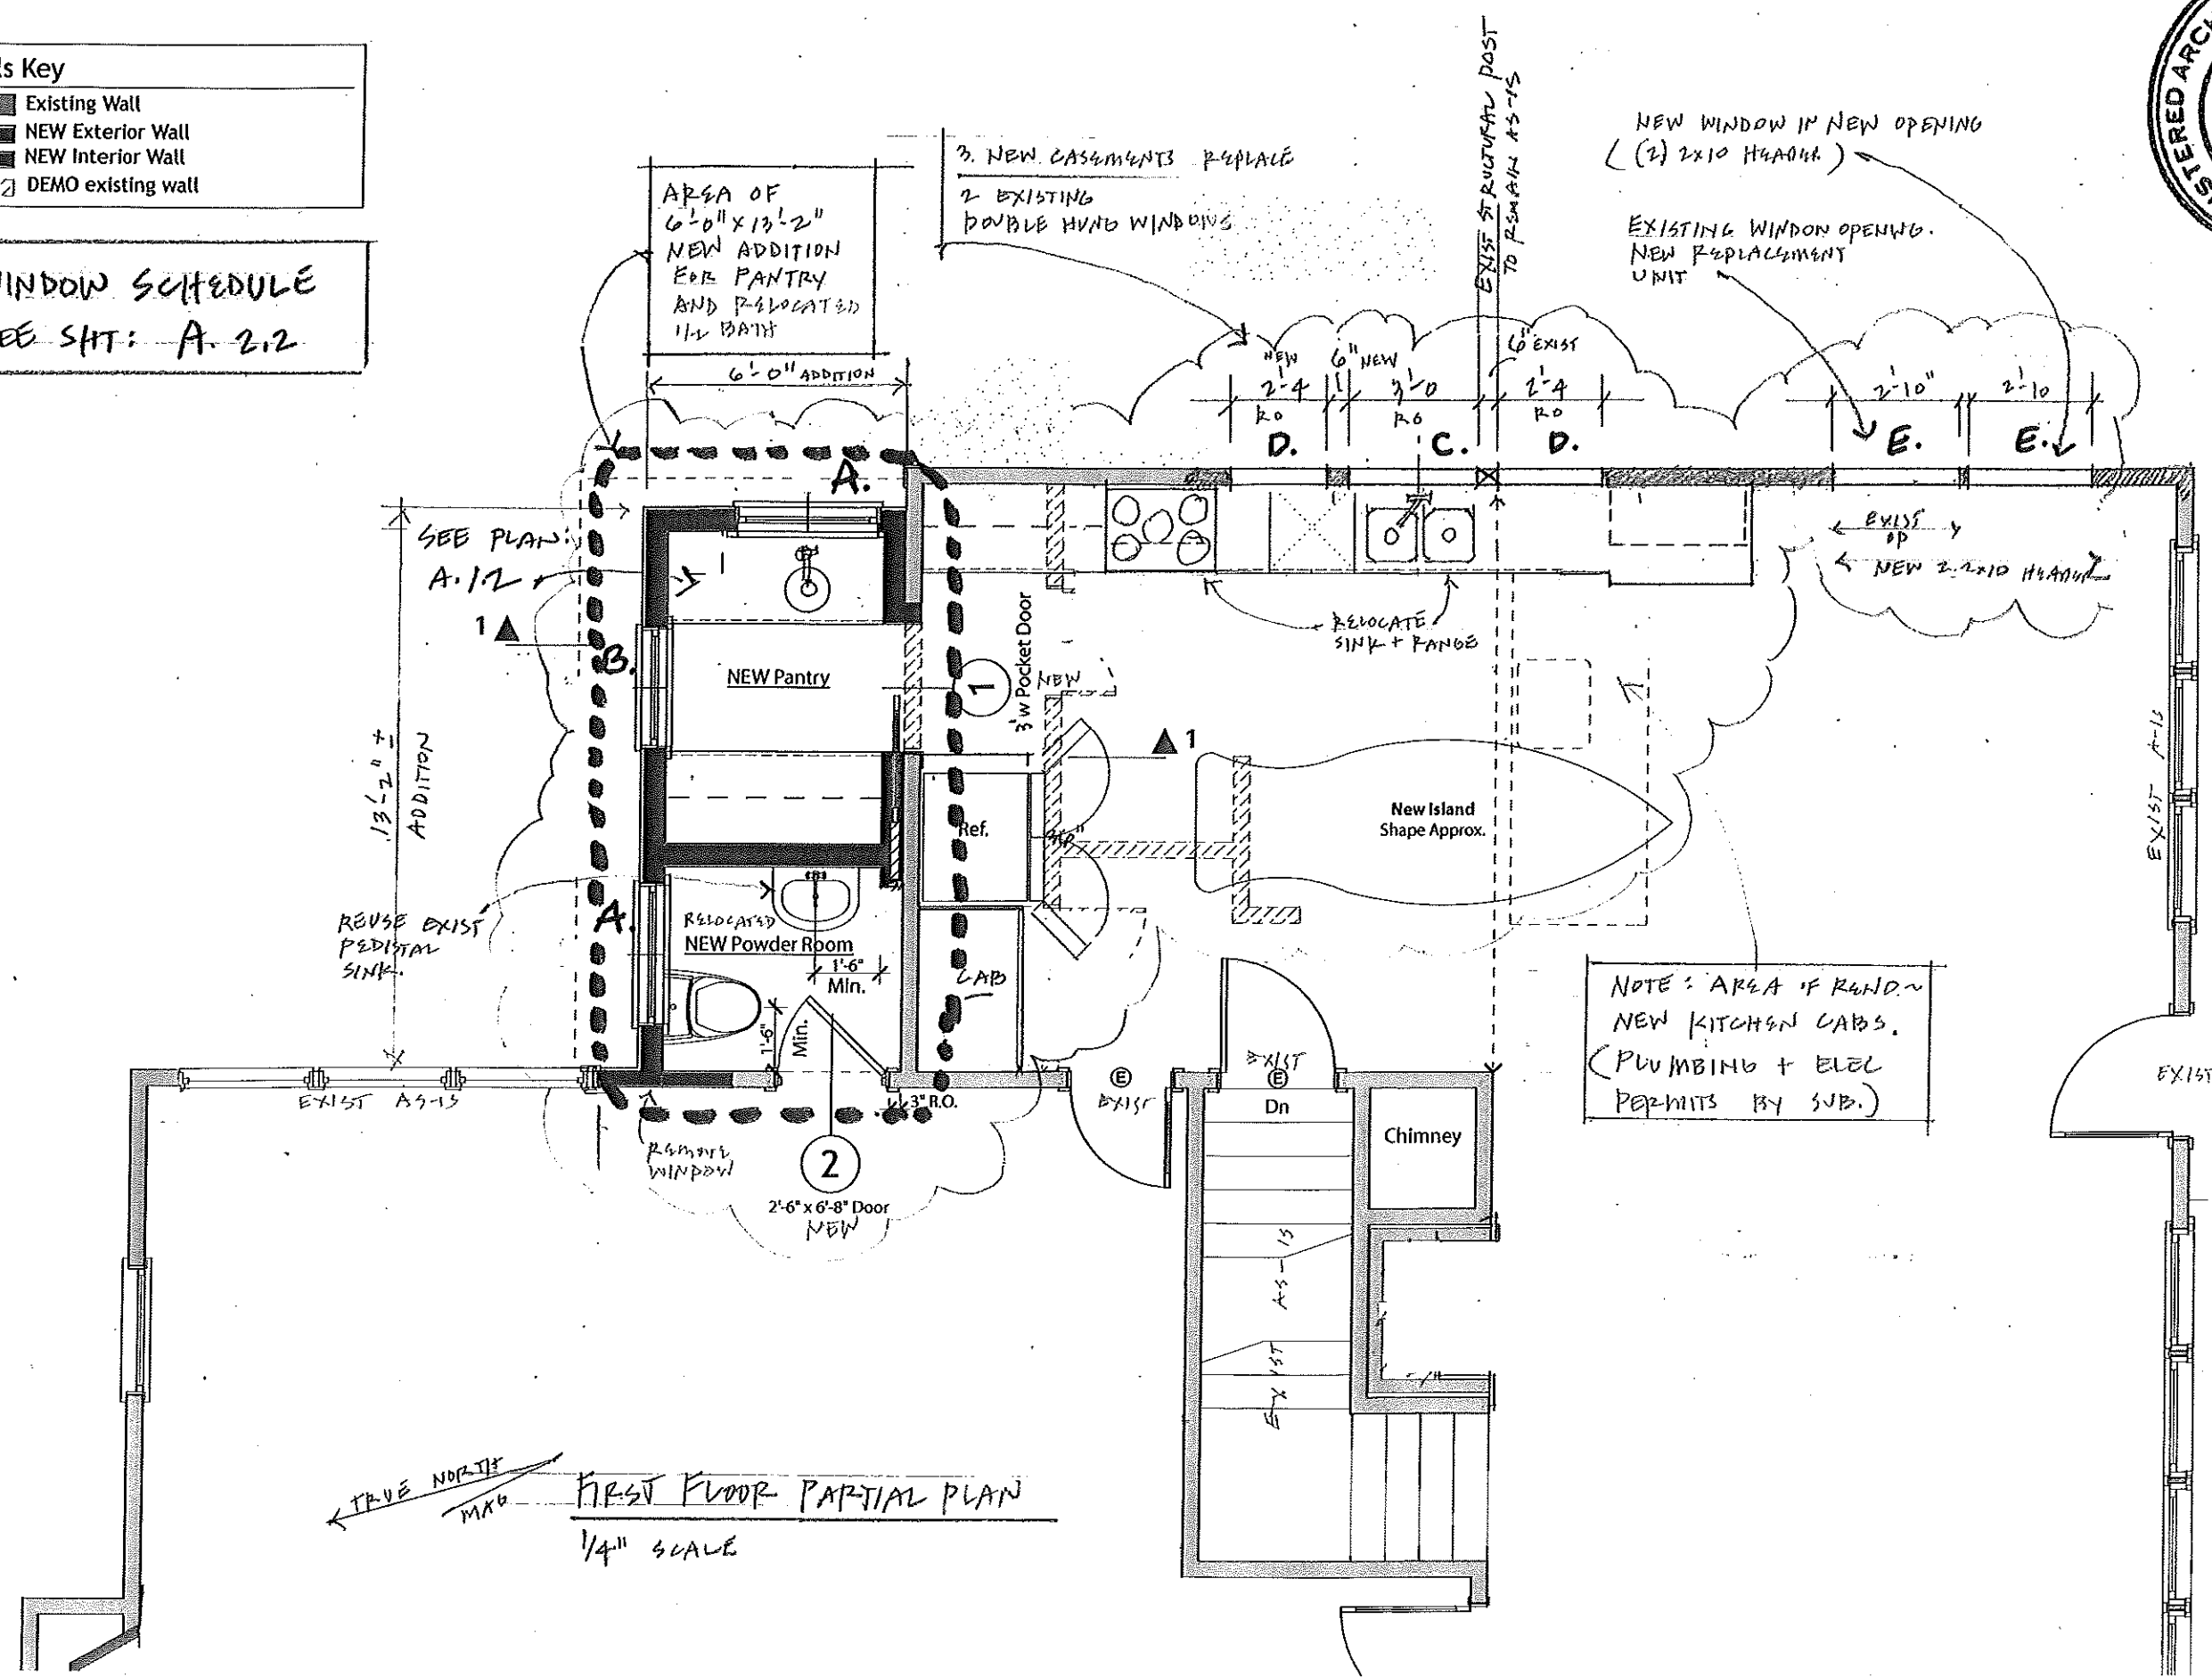 ls Key
Existing Wall
NEW Exterior Wall
NEW Interior Wall
DEMO existing wall
INDOW SCHEDULE
EE SHT: A. 2.2
AREA OF
6'-0" X 13'-2"
NEW ADDITION
FOR PANTRY
AND RELOCATED
1/2 BATH
6'-0" ADDITION
3. NEW CASEMENTS REPLACE
2 EXISTING
DOUBLE HUNG WINDOWS
EXIST STRUCTURAL POST
TO REMAIN AS-IS
NEW WINDOW IN NEW OPENING
((2) 2X10 HEADER)
EXISTING WINDOW OPENING.
NEW REPLACEMENT
UNIT
STERED ARCH
NEW
2'-4
RO
6" NEW
3'-0
RO
6" EXIST
2'-4
RO
2'-10"
2'-10
D.
C.
D.
E.
E.
A.
SEE PLAN:
A.1.2
1
B.
NEW Pantry
1
3' w Pocket Door
NEW
RELOCATE
SINK + RANGE
EXIST
OP
NEW 2.2X10 HEADER
EXIST A-IS
13'-2" ±
ADDITION
1
New Island
Shape Approx.
Ref.
REUSE EXIST
PEDISTAL
SINK.
A.
RELOCATED
NEW Powder Room
1'-6"
Min.
1'-6"
Min.
CAB
NOTE: AREA OF RENO.~
NEW KITCHEN CABS.
(PLUMBING + ELEC
PERMITS BY SUB.)
EXIST AS-IS
3" R.O.
E
EXIST
EXIST
E
Dn
Chimney
EXIST
REMOVE
WINDOW
2
2'-6" x 6'-8" Door
NEW
EXIST AS-IS
TRUE NORTH
MAG
FIRST FLOOR PARTIAL PLAN
1/4" SCALE